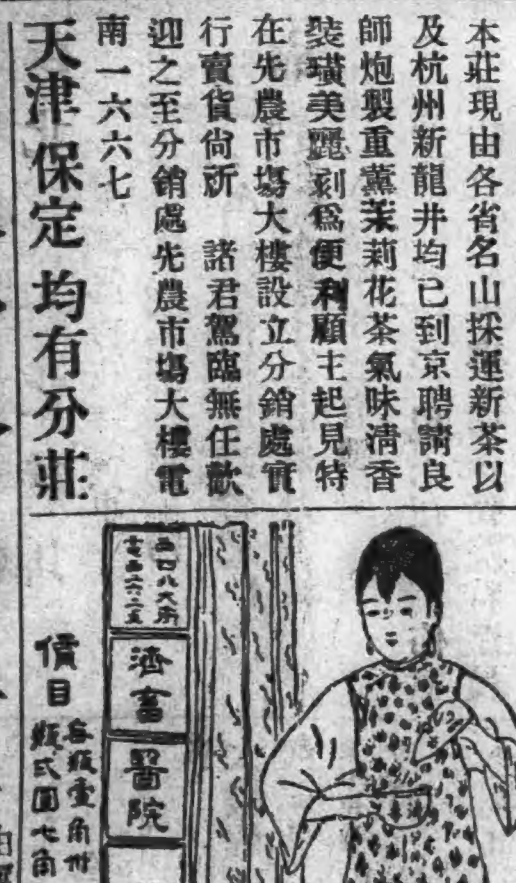 本莊現由各省名山採運新茶以
及杭州新龍井均已到京聘請良
師炮製重薰茉莉花茶氣味淸香
裝璜美麗刻爲便利顧主起見特
在先農市塲大樓設立分銷處實
行賣貨尙祈 諸君駕臨無任歡
迎之至分銷處先農市塲大樓電
南一六六七
天津 保定 均有分莊
濟畜
醫院
價目
每瓶壹角廿
瓶弍圓七角